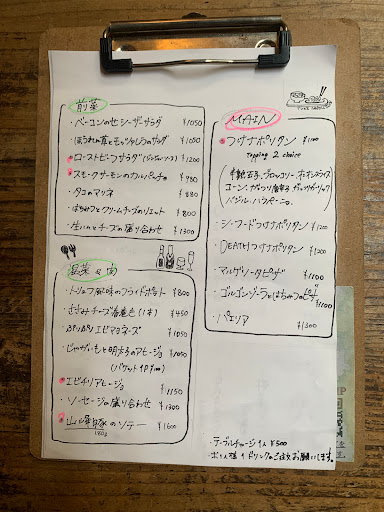 前菜
・ベーコンのせシーザーサラダ ¥1050
・ほうれん草とモッツァレラのサラダ ¥1050
・ローストビーフサラダ ¥1200
・スモークサーモンのカルパッチョ ¥980
・タコのマリネ ¥880
・はちみつとクリームチーズのリエット ¥800
・生ハムとチーズの盛り合わせ ¥1300
温菜&肉
・トリュフ風味のフライドポテト ¥800
・ささみチーズ春巻き(1本) ¥450
・ぷりぷりエビマヨネーズ ¥1050
・じゃがいもと明太子のアヒージョ ¥1050
(バケット1P¥100)
・エビチリアヒージョ ¥1150
・ソーセージの盛り合わせ ¥1300
・山深豚のソテー ¥1600
180g
MAIN
・つけナポリタン ¥1100
Topping 2 choice
(半熟玉子、ブロッコリー、オニオンスライス
コーン、
バジル、ハラペーニョ、
・シーフードつけナポリタン ¥1200
・DEATHつけナポリタン ¥1200
・マルゲリータピザ ¥1100
・ゴルゴンゾーラとはちみつのピザ ¥1100
・パエリア ¥1300
・テーブルチャージ1人¥300
・お1人様1ドリンクのご注文お願いします。